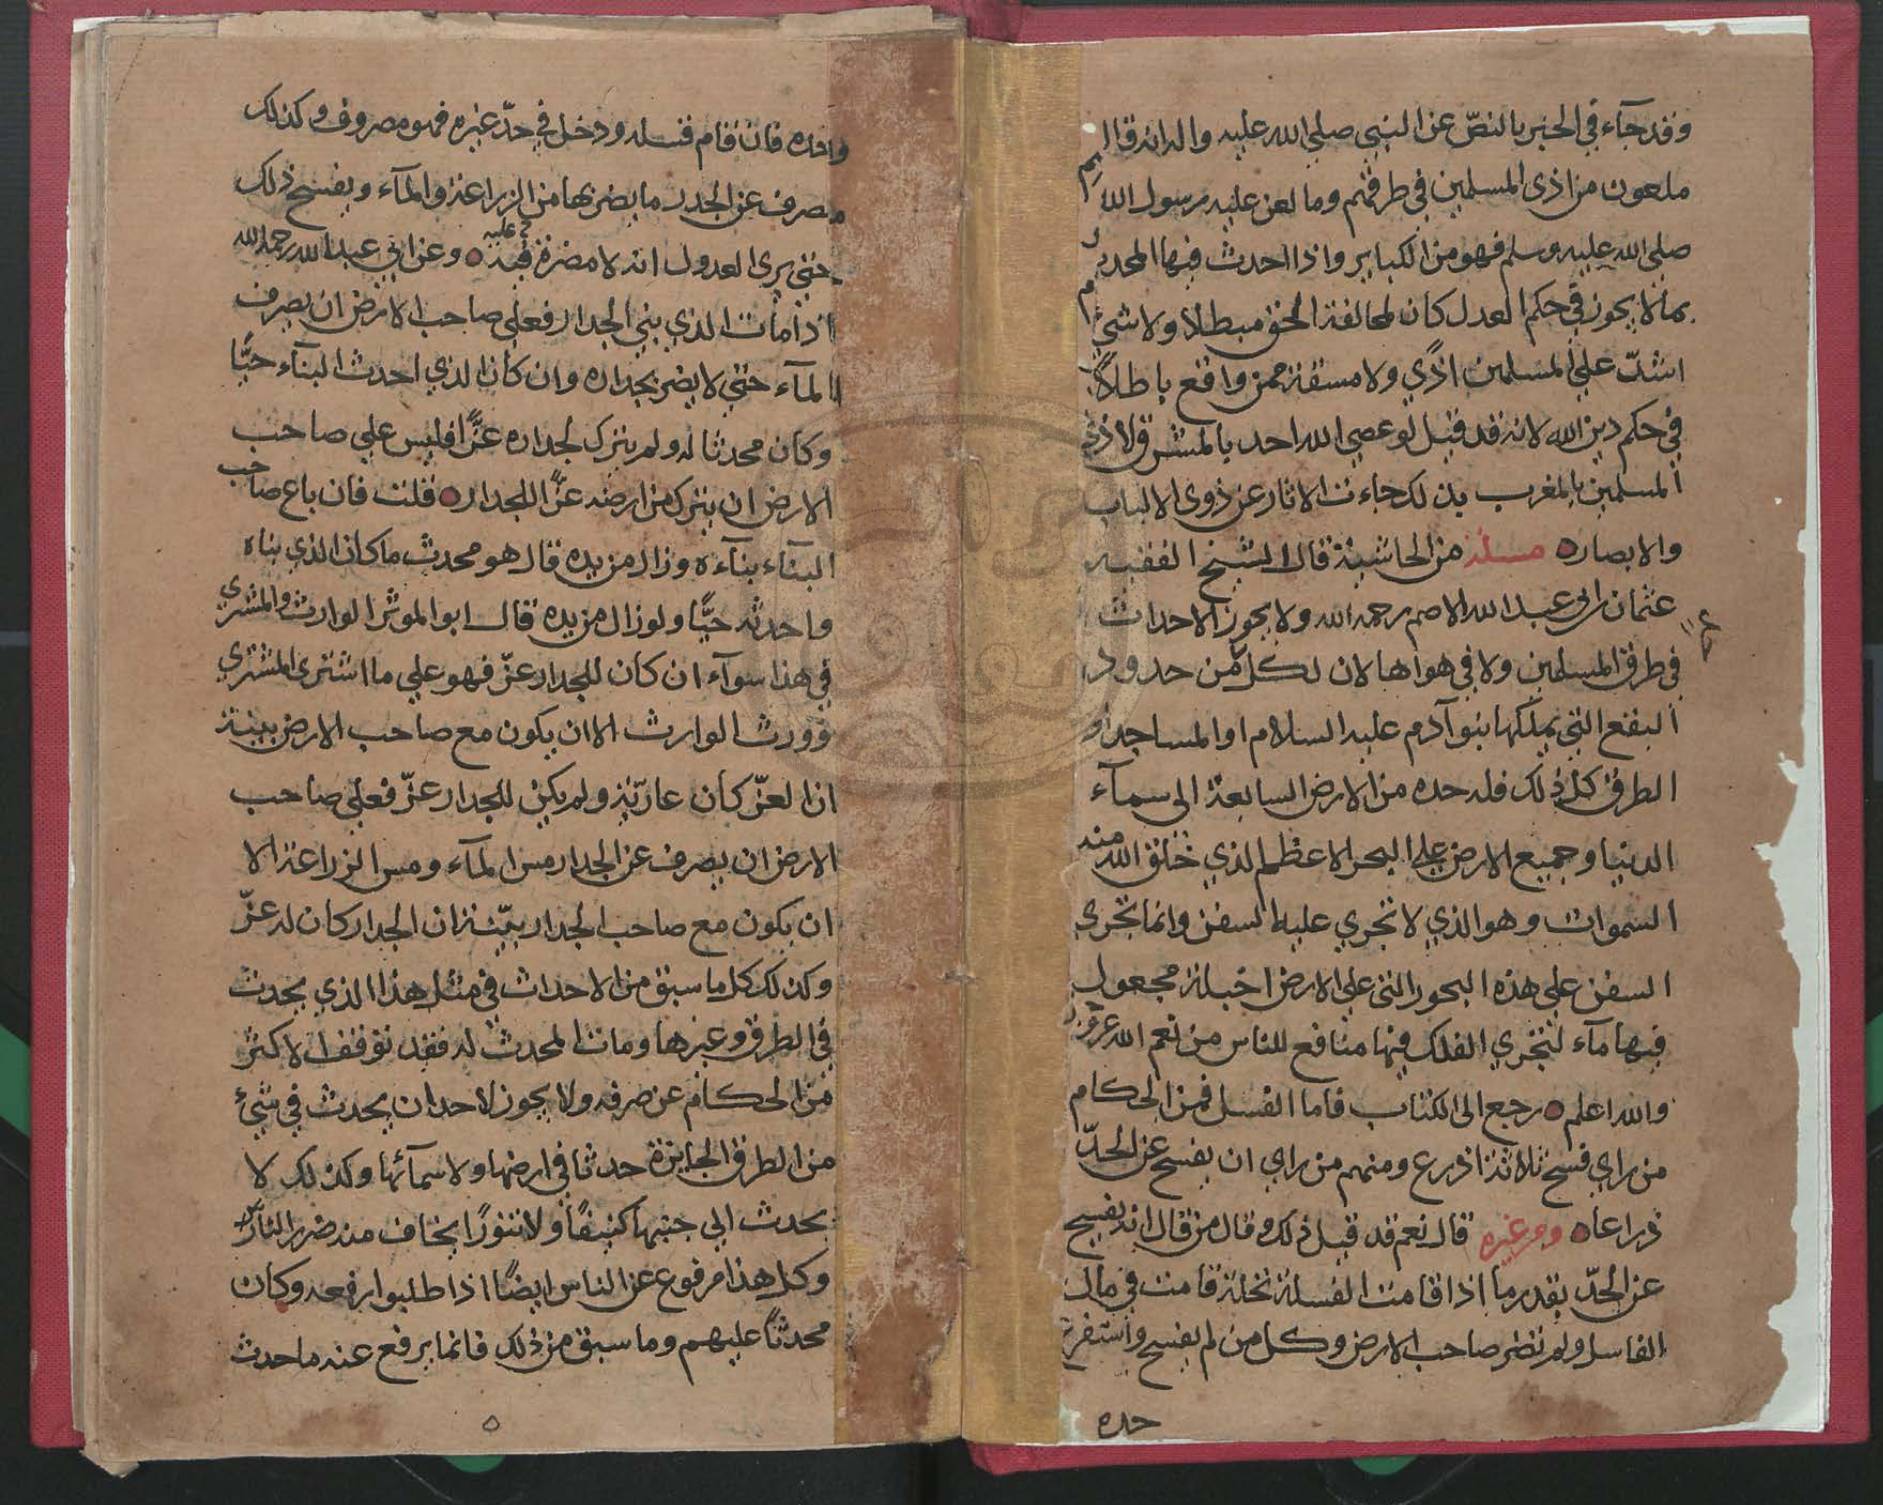 وقد جآء في الخبر بالنصّ عن النبي صلى الله عليه واله انه قال
ملعون من اذى المسلمين في طرقهم وما لعن عليه رسول الله
صلى الله عليه وسلم فهو من الكباير واذا احدث فيها المحدث
بما لا يجوز في حكم العدل كان لمخالفة الحق مبطلا ولا شيء
اشدّ على المسلمين اذًى ولا مشقة ممن واقع باطلاً
في حكم دين الله لانه قد قيل لو عصى الله احد بالمشرق لاذى
المسلمين بالمغرب بذلك جاءت الاثار عن ذوى الالباب
والابصار ه مسئلة من الحاشية قال الشيخ الفقيه
عثمان ابن ابى عبد الله الاصم رحمه الله ولا يجوز الاحداث
في طرق المسلمين ولا في هواها لان لكل من حدود
البقع التي يملكها بنو آدم عليه السلام او المساجد او
الطرق كل ذلك فله حده من الارض السابعة الى سمآء
الدنيا وجميع الارض على البحر الاعظم الذي خلق الله منه
السموات وهو الذي لا تجري عليه السفن وانما تجرى
السفن على هذه البحور التي على الارض اخبلة مجعول
فيها مآء لتجري الفلك فيها منافع للناس من نعم الله عز وجل
والله اعلم ه رجع الى الكتاب فاما الفسل فمن الحكام
من راى فسح ثلاثة اذرع ومنهم من راي ان يفسح عن الحدّ
ذراعا ه ومن غيره قال نعم قد قيل ذلك وقال من قال انه يفسح
عن الحدّ بقدر ما اذا قامت الفسلة نخلة قامت في مال
الفاسل ولم تضر صاحب الارض وكل من لم يفسح واستفرغ
حده
وحده فان قام فسله ودخل في حدّ غيره فهو مصروف وكذلك
مصرف عن الجدر ما يضر بها من الزراعة والمآء ويفسح ذلك
حتى يرى العدول انه لا مضرة فيه ه وعن ابي عبد الله رحمه الله
عليه
اذا مات الذي بنى الجدار فعلى صاحب الارض ان يصرف
المآء حتى لا يضر بجداره وان كان الذي احدث البنآء حيًّا
وكان محدثا له ولم يترك لجداره عزًّا فليس على صاحب
الارض ان يترك من ارضه عزًّا للجدار ه قلت فان باع صاحب
البنآء بنآءه وزال من يده قال هو محدث ما كان الذي بناه
واحدثه حيًّا ولو زال من يده قال ابو الموثر الوارث والمشترى
في هذا سوآء ان كان للجدار عزّ فهو على ما اشترى المشتري
وورث الوارث الا ان يكون مع صاحب الارض بينة
ان العزّ كان عاريّة ولم يكن للجدار عزّ فعلى صاحب
الارض ان يصرف عن الجدار مس المآء ومس الزراعة الا
ان يكون مع صاحب الجدار بيّنة ان الجدار كان له عزّ
وكذلك كل ما سبق من الاحداث في مثل هذا الذي يحدث
في الطرق وغيرها ومات المحدث له فقد توقف الاكثر
من الحكام عن صرفه ولا يجوز لاحد ان يحدث في شيء
من الطرق الجايزة حدثا في ارضها ولا سمآئها وكذلك لا
يحدث الى جنبها كنيفًا ولا تنورًا يخاف منه ضرر النار
وكل هذا مرفوع عن الناس ايضًا اذا طلبوا رفعه وكان
محدثاً عليهم وما سبق من ذلك فانما يرفع عنه ما حدث